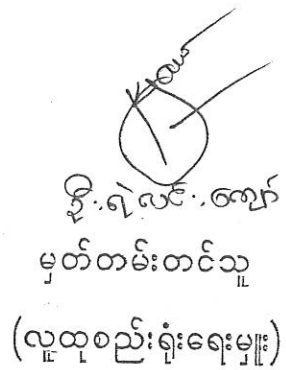 ဦးရဲလင်းကျော်
မှတ်တမ်းတင်သူ
(လူထုစည်းရုံးရေးမှူး)